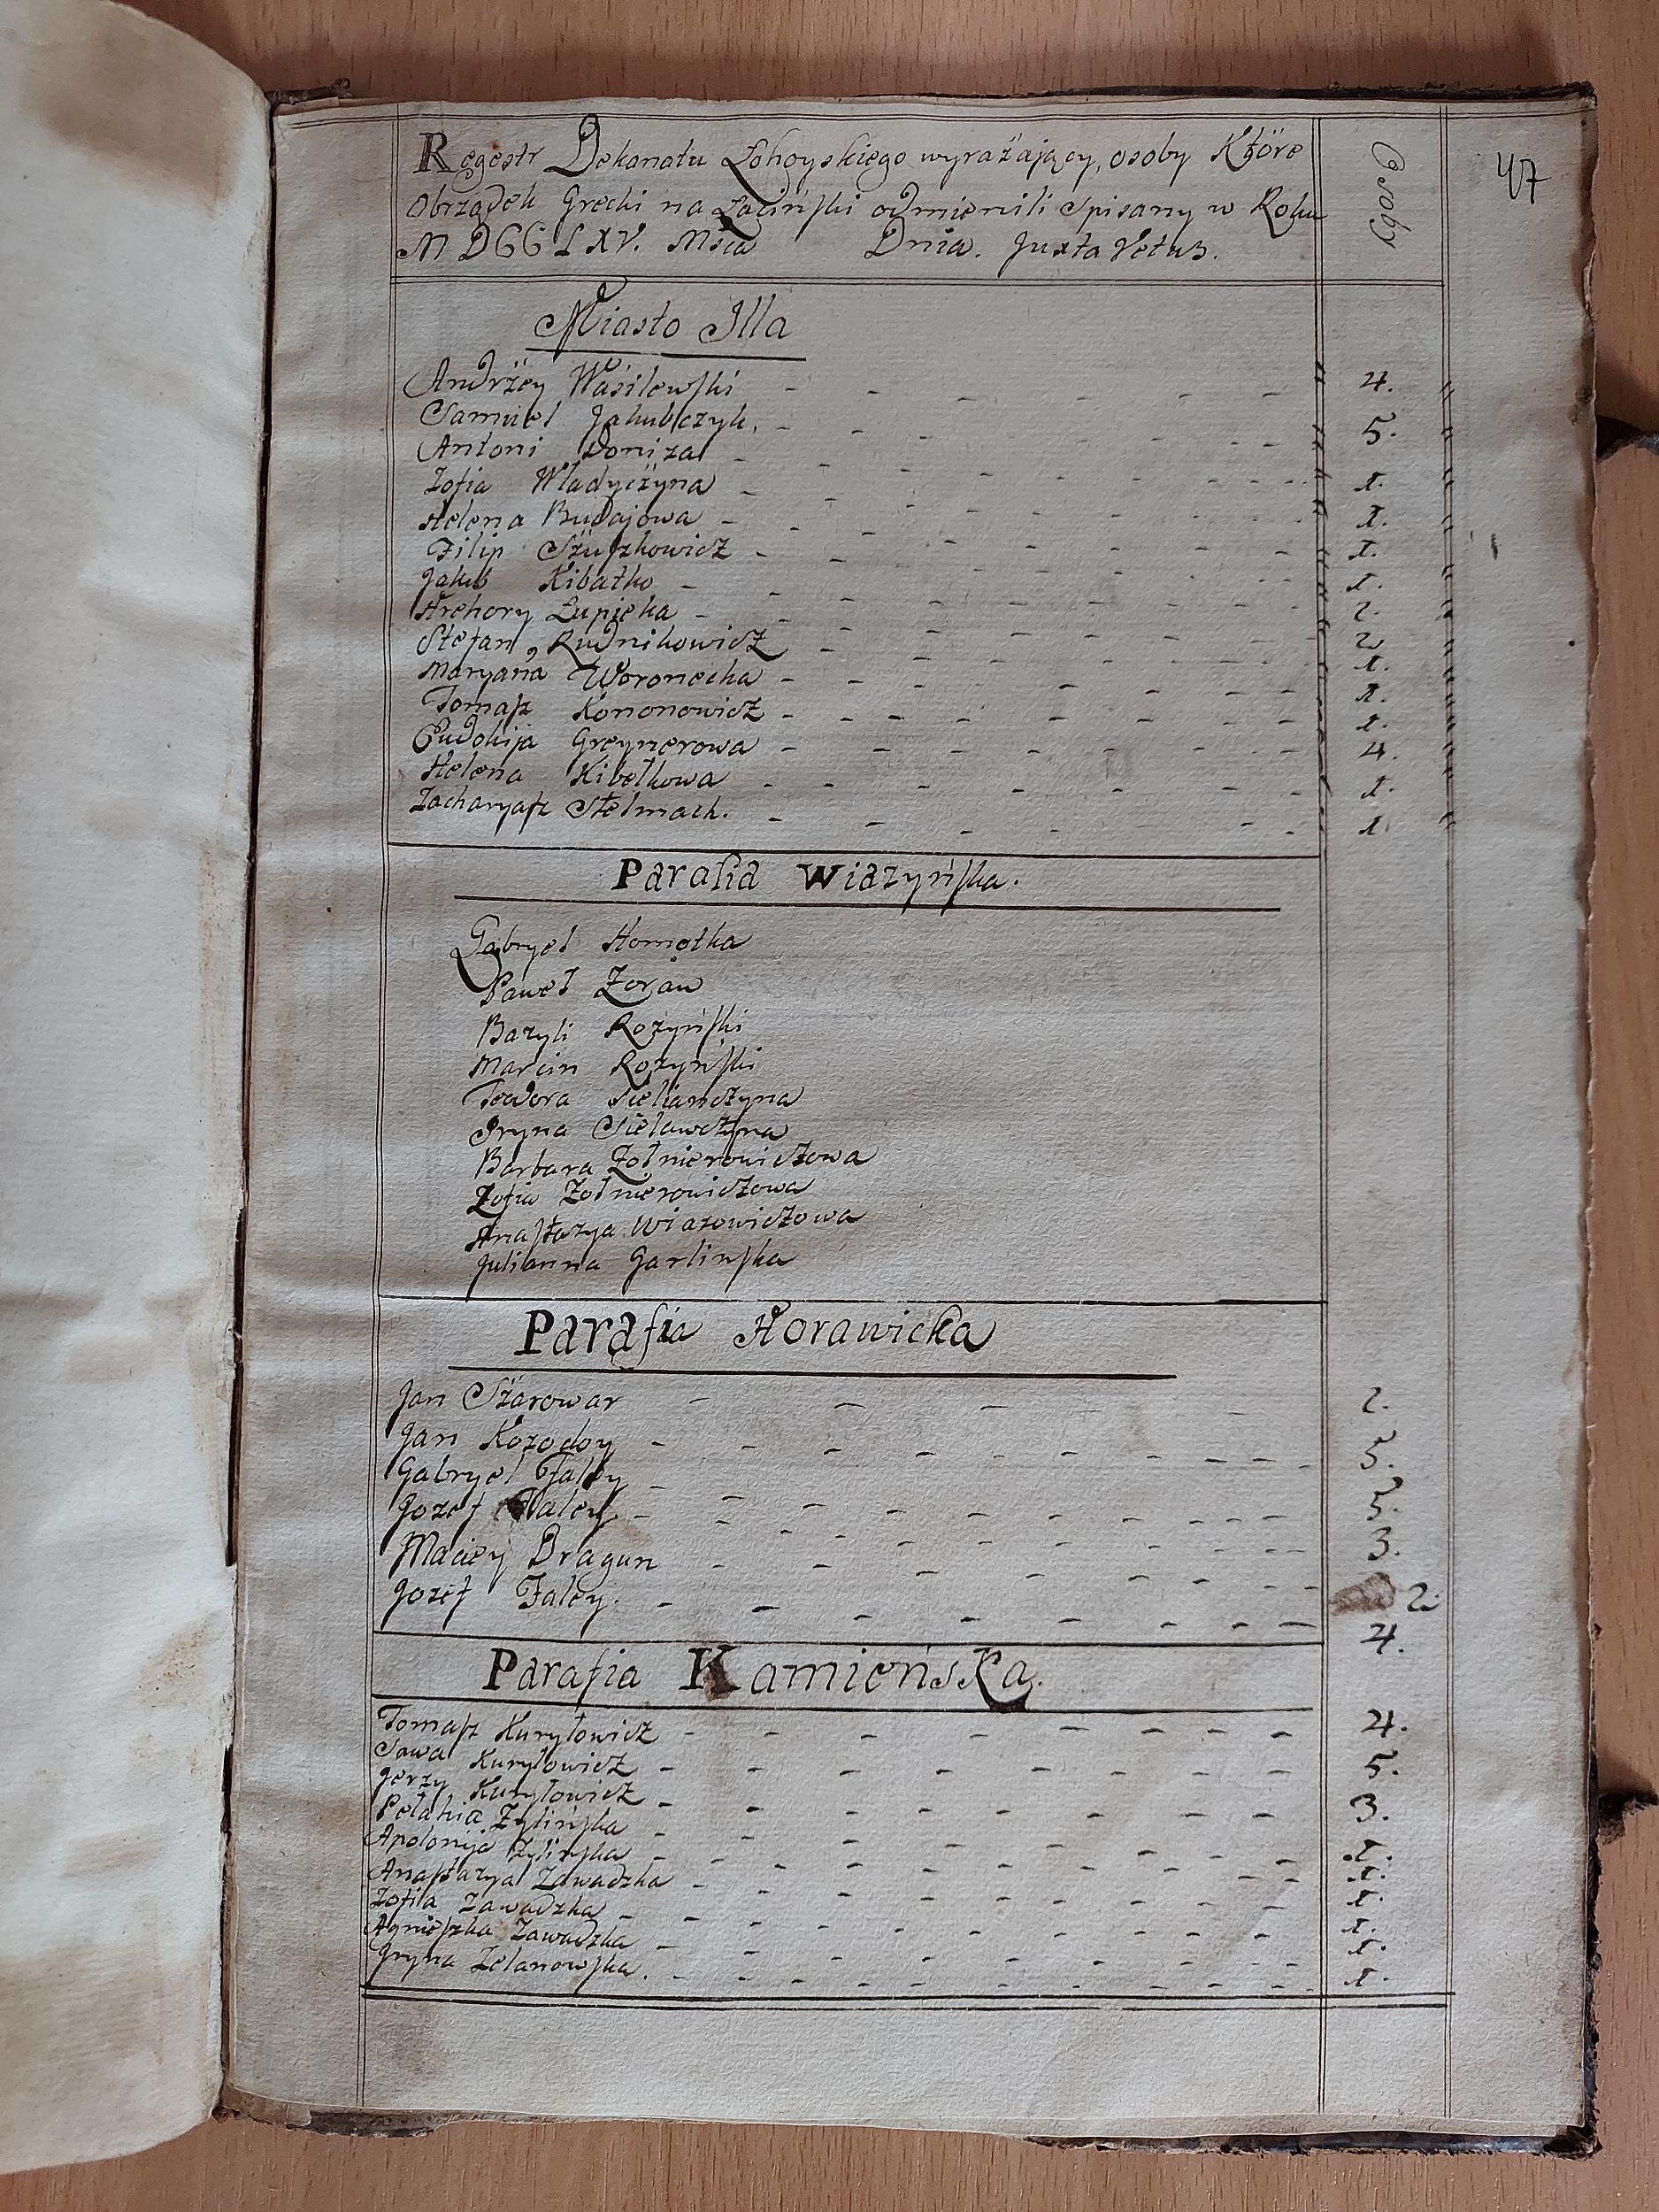 Regestr Dekanatu Łohoyskiego wyrażaiący, osoby Które
Obrządek Grecki na Łaciński odmienili Spisany w Roku
MDCCLXV. Msca Dnia. Juxta Vetus.
Osoby
47
Miasto Illa
Andrzey Wasilewski - - - - - - 4.
Samuel Jakubczyk. - - - - - - 5.
Antoni Doniza - - - - - -
Zofia Władyczyna - - - - - - 1.
Helena Budajowa - - - - - - 1.
Filip Szuszkowicz - - - - - - 1.
Jakub Kibałko - - - - - - 1.
Hrehory Łupieka - - - - - - 2.
Stefan Rudnikowicz - - - - - - 2
Maryana Woronecka - - - - - - 1.
Tomasz Kononowicz - - - - - - 1.
Eudokija Greynerowa - - - - - - 1.
Helena Kibełkowa - - - - - - 4.
Zacharyasz Stelmach. - - - - - - 1.
1
Parafia Wiazyńska.
Gabryel Homołka
Paweł Zoraw
Bazyli Rozyński
Marcin Rozyński
Teodora Sielianczyna
Iryna Sielawczyna
Barbara Żołnierowiczowa
Zofia Żołnierowiczowa
Anastazya Wiazowiczowa
Julianna Garlinska
Parafia Horawicka
Jan Szarowar - - - - 2.
Jan Kozodoy - - - - - - 5.
Gabryel Faley - - - - - - 5.
Jozef Faley - - - - - - 3.
Maciey Dragun - - - - - - 2.
Jozef Faley. - - - - - - 4.
Parafia Kamieńska.
Tomasz Kuryłowicz - - - - - - 4.
Sawa Kuryłowicz - - - - - - 5.
Jerzy Kuryłowicz - - - - - - 3.
Pelahia Zylińska - - - - - - 1.
Apolonija Zylinska - - - - - - 1.
Anastazya Zawadzka - - - - - - 1.
Zofiia Zawadzka - - - - - - 1.
Agnieszka Zawadzka - - - - - - 1.
Iryna Zelanowska. - - - - - - 1.